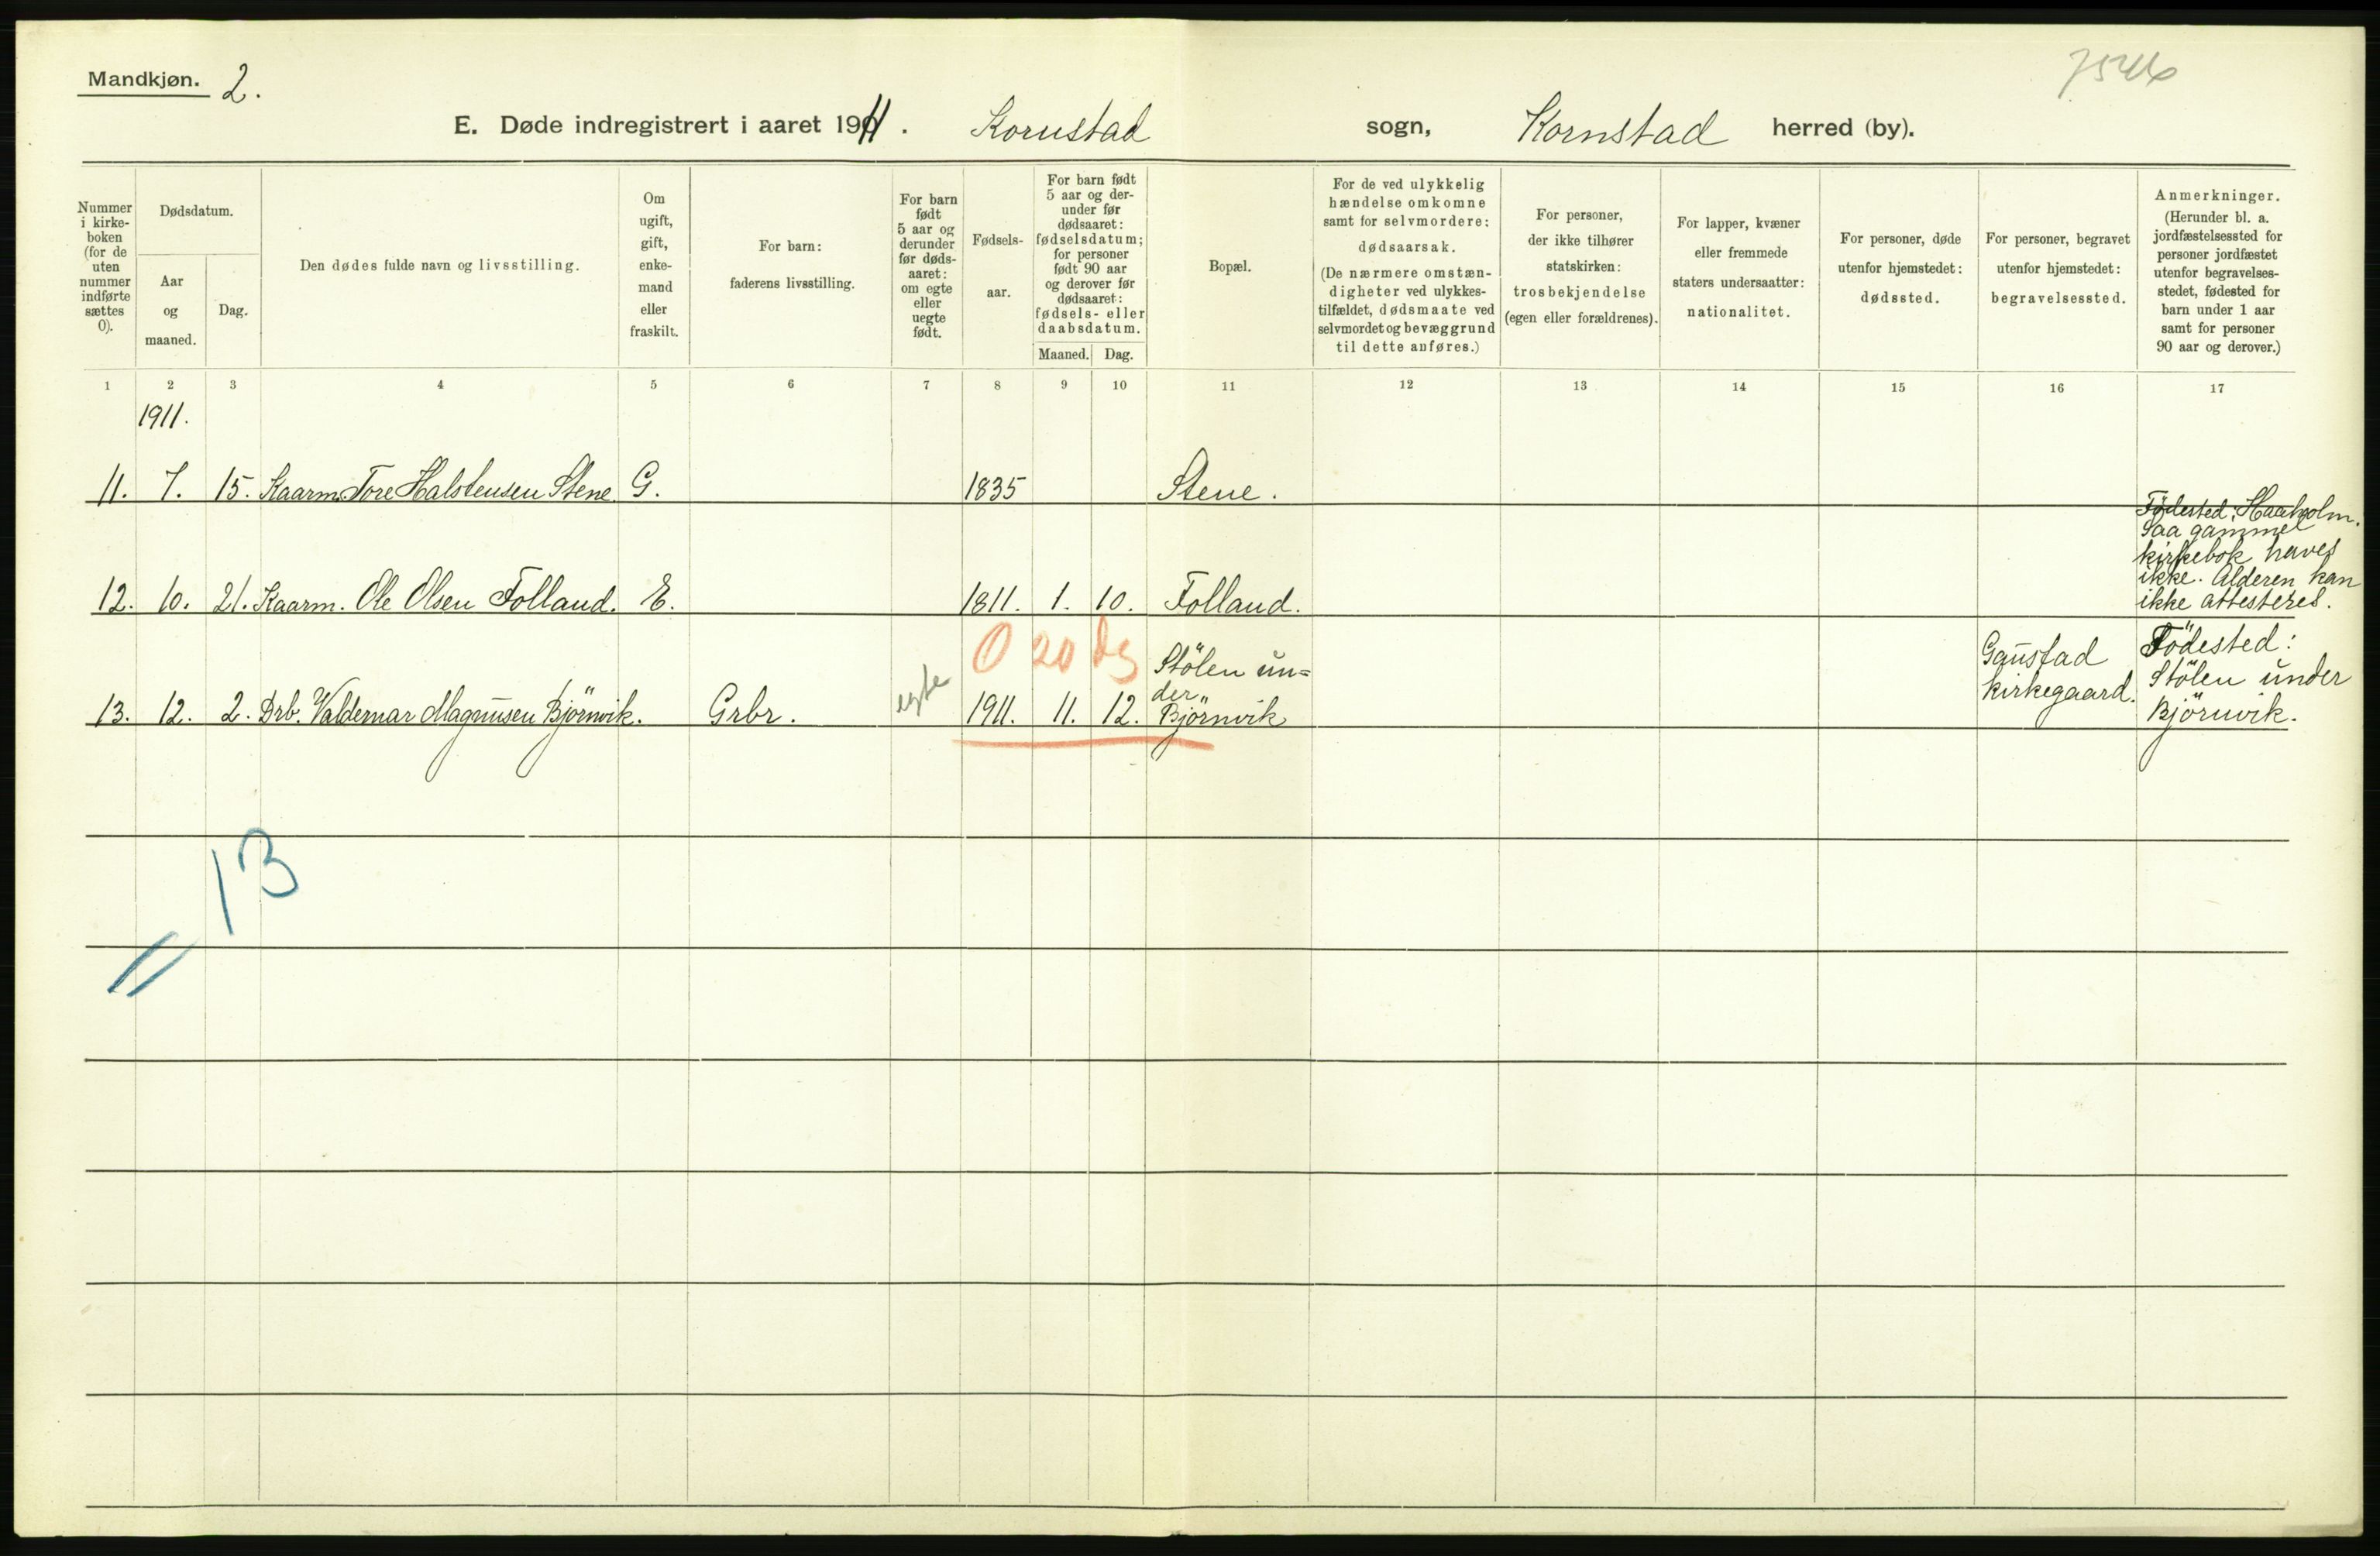 Mandkjøn. 2.
7546
E. Døde indregistrert i aaret 1911. Kornstad sogn, Kornstad herred (by).
Nummer i kirke- boken (for de uten nummer indførte sættes 0).
Dødsdatum.
Aar og maaned.
Dag.
Den dødes fulde navn og livsstilling.
Om ugift, gift, enke- mand eller fraskilt.
For barn: faderens livsstilling.
For barn født 5 aar og derunder før døds- aaret: om egte eller uegte født.
Fødsels- aar.
For barn født 5 aar og der- under før dødsaaret: fødselsdatum; for personer født 90 aar og derover før dødsaaret: fødsels- eller daabsdatum.
Maaned. Dag.
Bopæl.
For de ved ulykkelig hændelse omkomne samt for selvmordere: dødsaarsak. (De nærmere omstæn- digheter ved ulykkes- tilfældet, dødsmaate ved selvmordet og bevæggrund til dette anføres.)
For personer, der ikke tilhører statskirken: trosbekjendelse (egen eller forældrenes).
For lapper, kvæner eller fremmede staters undersaatter: nationalitet.
For personer, døde utenfor hjemstedet: dødssted.
For personer, begravet utenfor hjemstedet: begravelsessted.
Anmerkninger. (Herunder bl. a. jordfæstelsessted for personer jordfæstet utenfor begravelses- stedet, fødested for barn under 1 aar samt for personer 90 aar og derover.)
1 2 3 4 5 6 7 8 9 10 11 12 13 14 15 16 17
1911.
11. 7. 15. Kaarm. Tore Halstensen Stene. G. 1835 Stene.
12. 10. 21. Kaarm. Ole Olsen Folland. E. 1811. 1. 10. Folland.
Födested: Haaholm.
Saa gammel
kirkebok haves
ikke. Alderen kan
ikke attesteres.
0 20 dg
13. 12. 2. Drb. Valdemar Magnusen Björnvik. Grbr. egte 1911. 11. 12.
Stölen un=
der
Björnvik
Gaustad
kirkegaard.
Födested:
Stölen under
Björnvik.
13